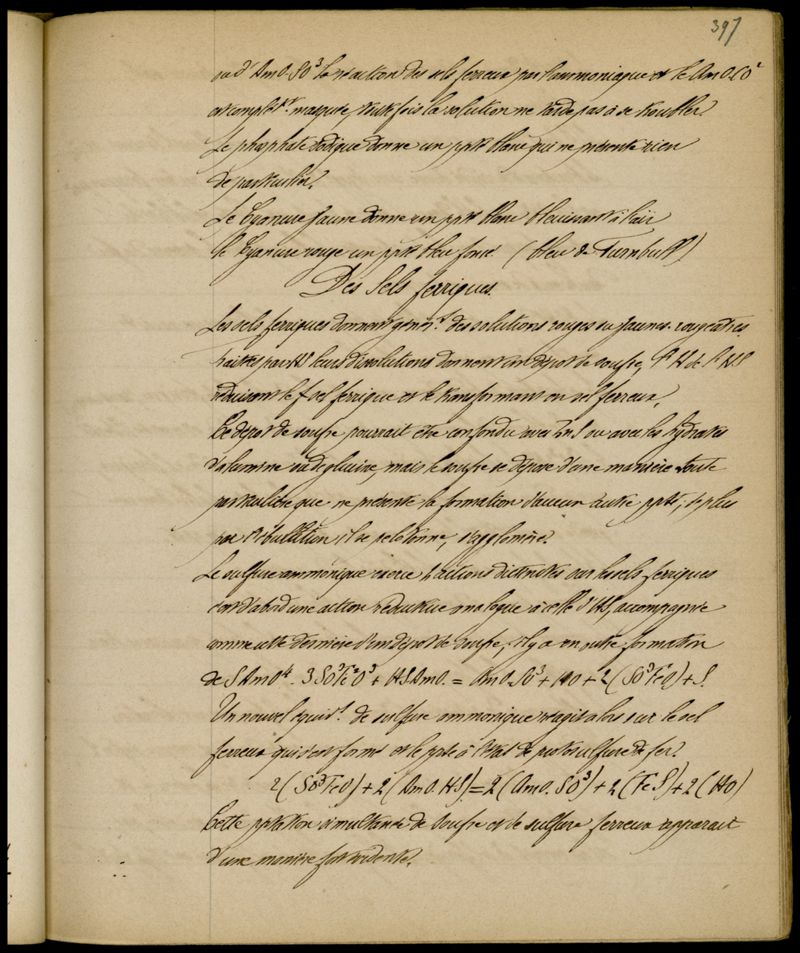 397
ou d'AmO.SO³ la réaction des sels ferreux par l'ammoniaque et le AmO.CO²
est complèt.t masquée, toutefois la solution ne tarde pas à se troubler.
Le phosphate sodique donne un ppté blanc qui ne présente rien
de particulier.
Le Cyanure jaune donne un ppté blanc bleuissant à l'air
le Cyanure rouge un ppté bleu foncé (bleu de Turnbull)
Des Sels ferriques.
Les sels ferriques donnent génér.t des solutions rouges ou jaunes-rougeatres.
traitées par HS leurs dissolutions donnent un dépot de soufre, l'H de l'HS
réduisant le sel ferrique et le transformant en sel ferreux.
Ce dépot de soufre pourrait être confondu avec ZnS ou avec les hydrates
d'alumine ou de glucine, mais le soufre se dépose d'une manière toute
particulière que ne présente la formation d'aucun autre ppté, de plus
par l'ébullition il se pelotonne, s'agglomère.
Le sulfure ammonique exerce 2 actions distinctes sur les sels ferriques
c'est d'abord une action réductive analogue à celle d'HS, accompagnée
comme cette dernière d'un dépot de soufre, il y a en outre formation
de SAmO⁴. 3SO³Fe²O³ + HS.AmO. = AmO.SO³ + HO + 2(SO³FeO) + S.
Un nouvel équiv.t de sulfure ammonique réagit alors sur le sel
ferreux qui s'est formé et le ppte à l'état de protosulfure de fer.
2(SO³FeO) + 2(AmO.HS) = 2(AmO.SO³) + 2(FeS) + 2(HO)
Cette pptation simultanée de soufre et de sulfure ferreux apparait
d'une manière fort évidente.